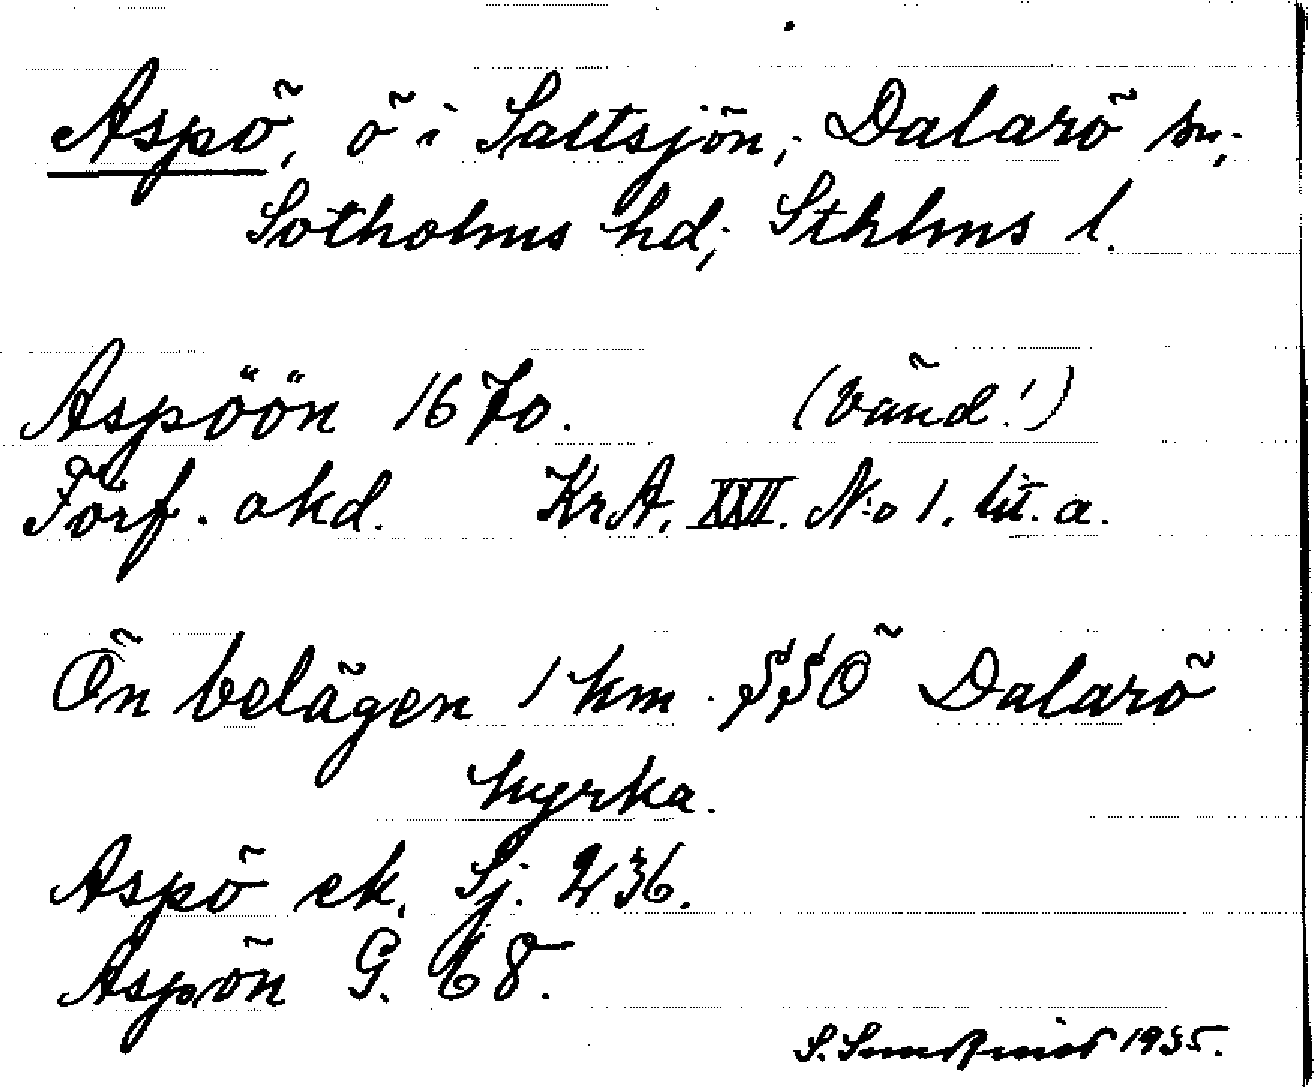 Aspö, ö i Saltsjön, Dalarö sn,
Sotholms hd, Sthlms l.
Aspöön 1670. (vänd!)
Förf. okd. KrA. XXII. N:o 1. lit. a.
Ön belägen 1 km. SSÖ Dalarö
kyrka.
Aspö ek. Sj. 236.
Aspön G. 68.
S. Sundqvist 1935.